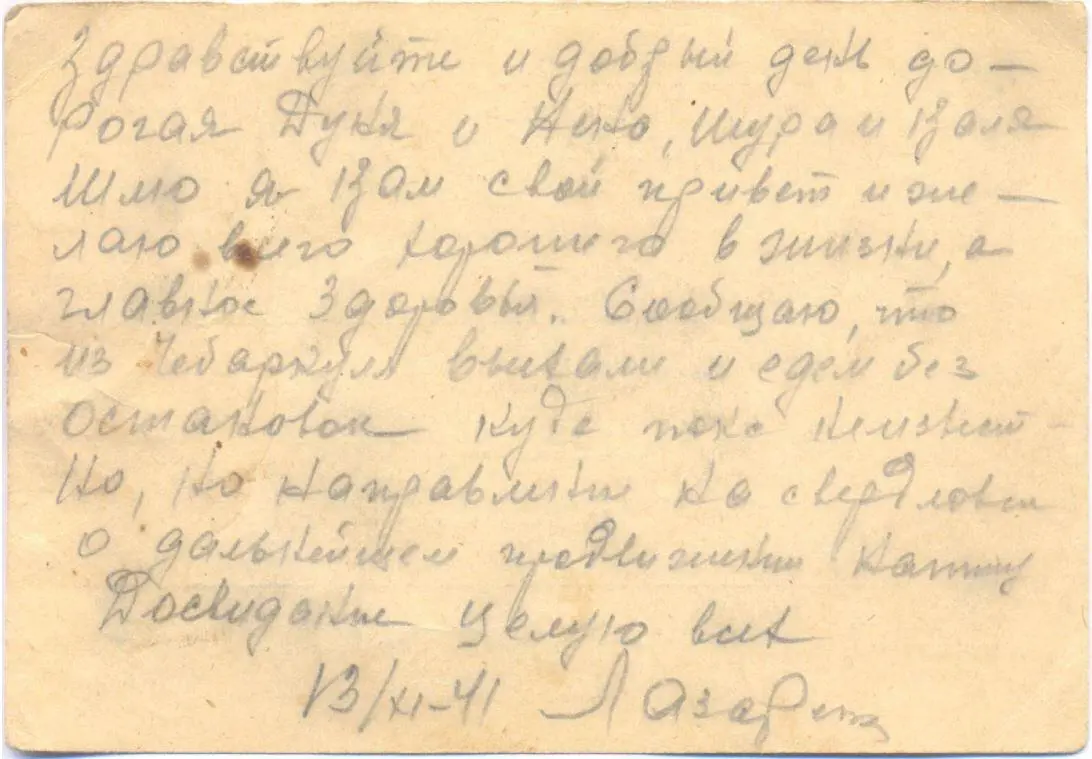 Здравствуйте и добрый день до-
рогая Дуня и Нико, Шура и Валя
Шлю я Вам свой привет и же-
лаю всего хорошего в жизни, а
главное здоровья. Сообщаю, что
из Чебаркуля выехали и едем без
остановок куде пока неизвест-
но, но направление на свердловск
о дальнейшем продвижении напишу
Досвидание целую всех
13/XI-41